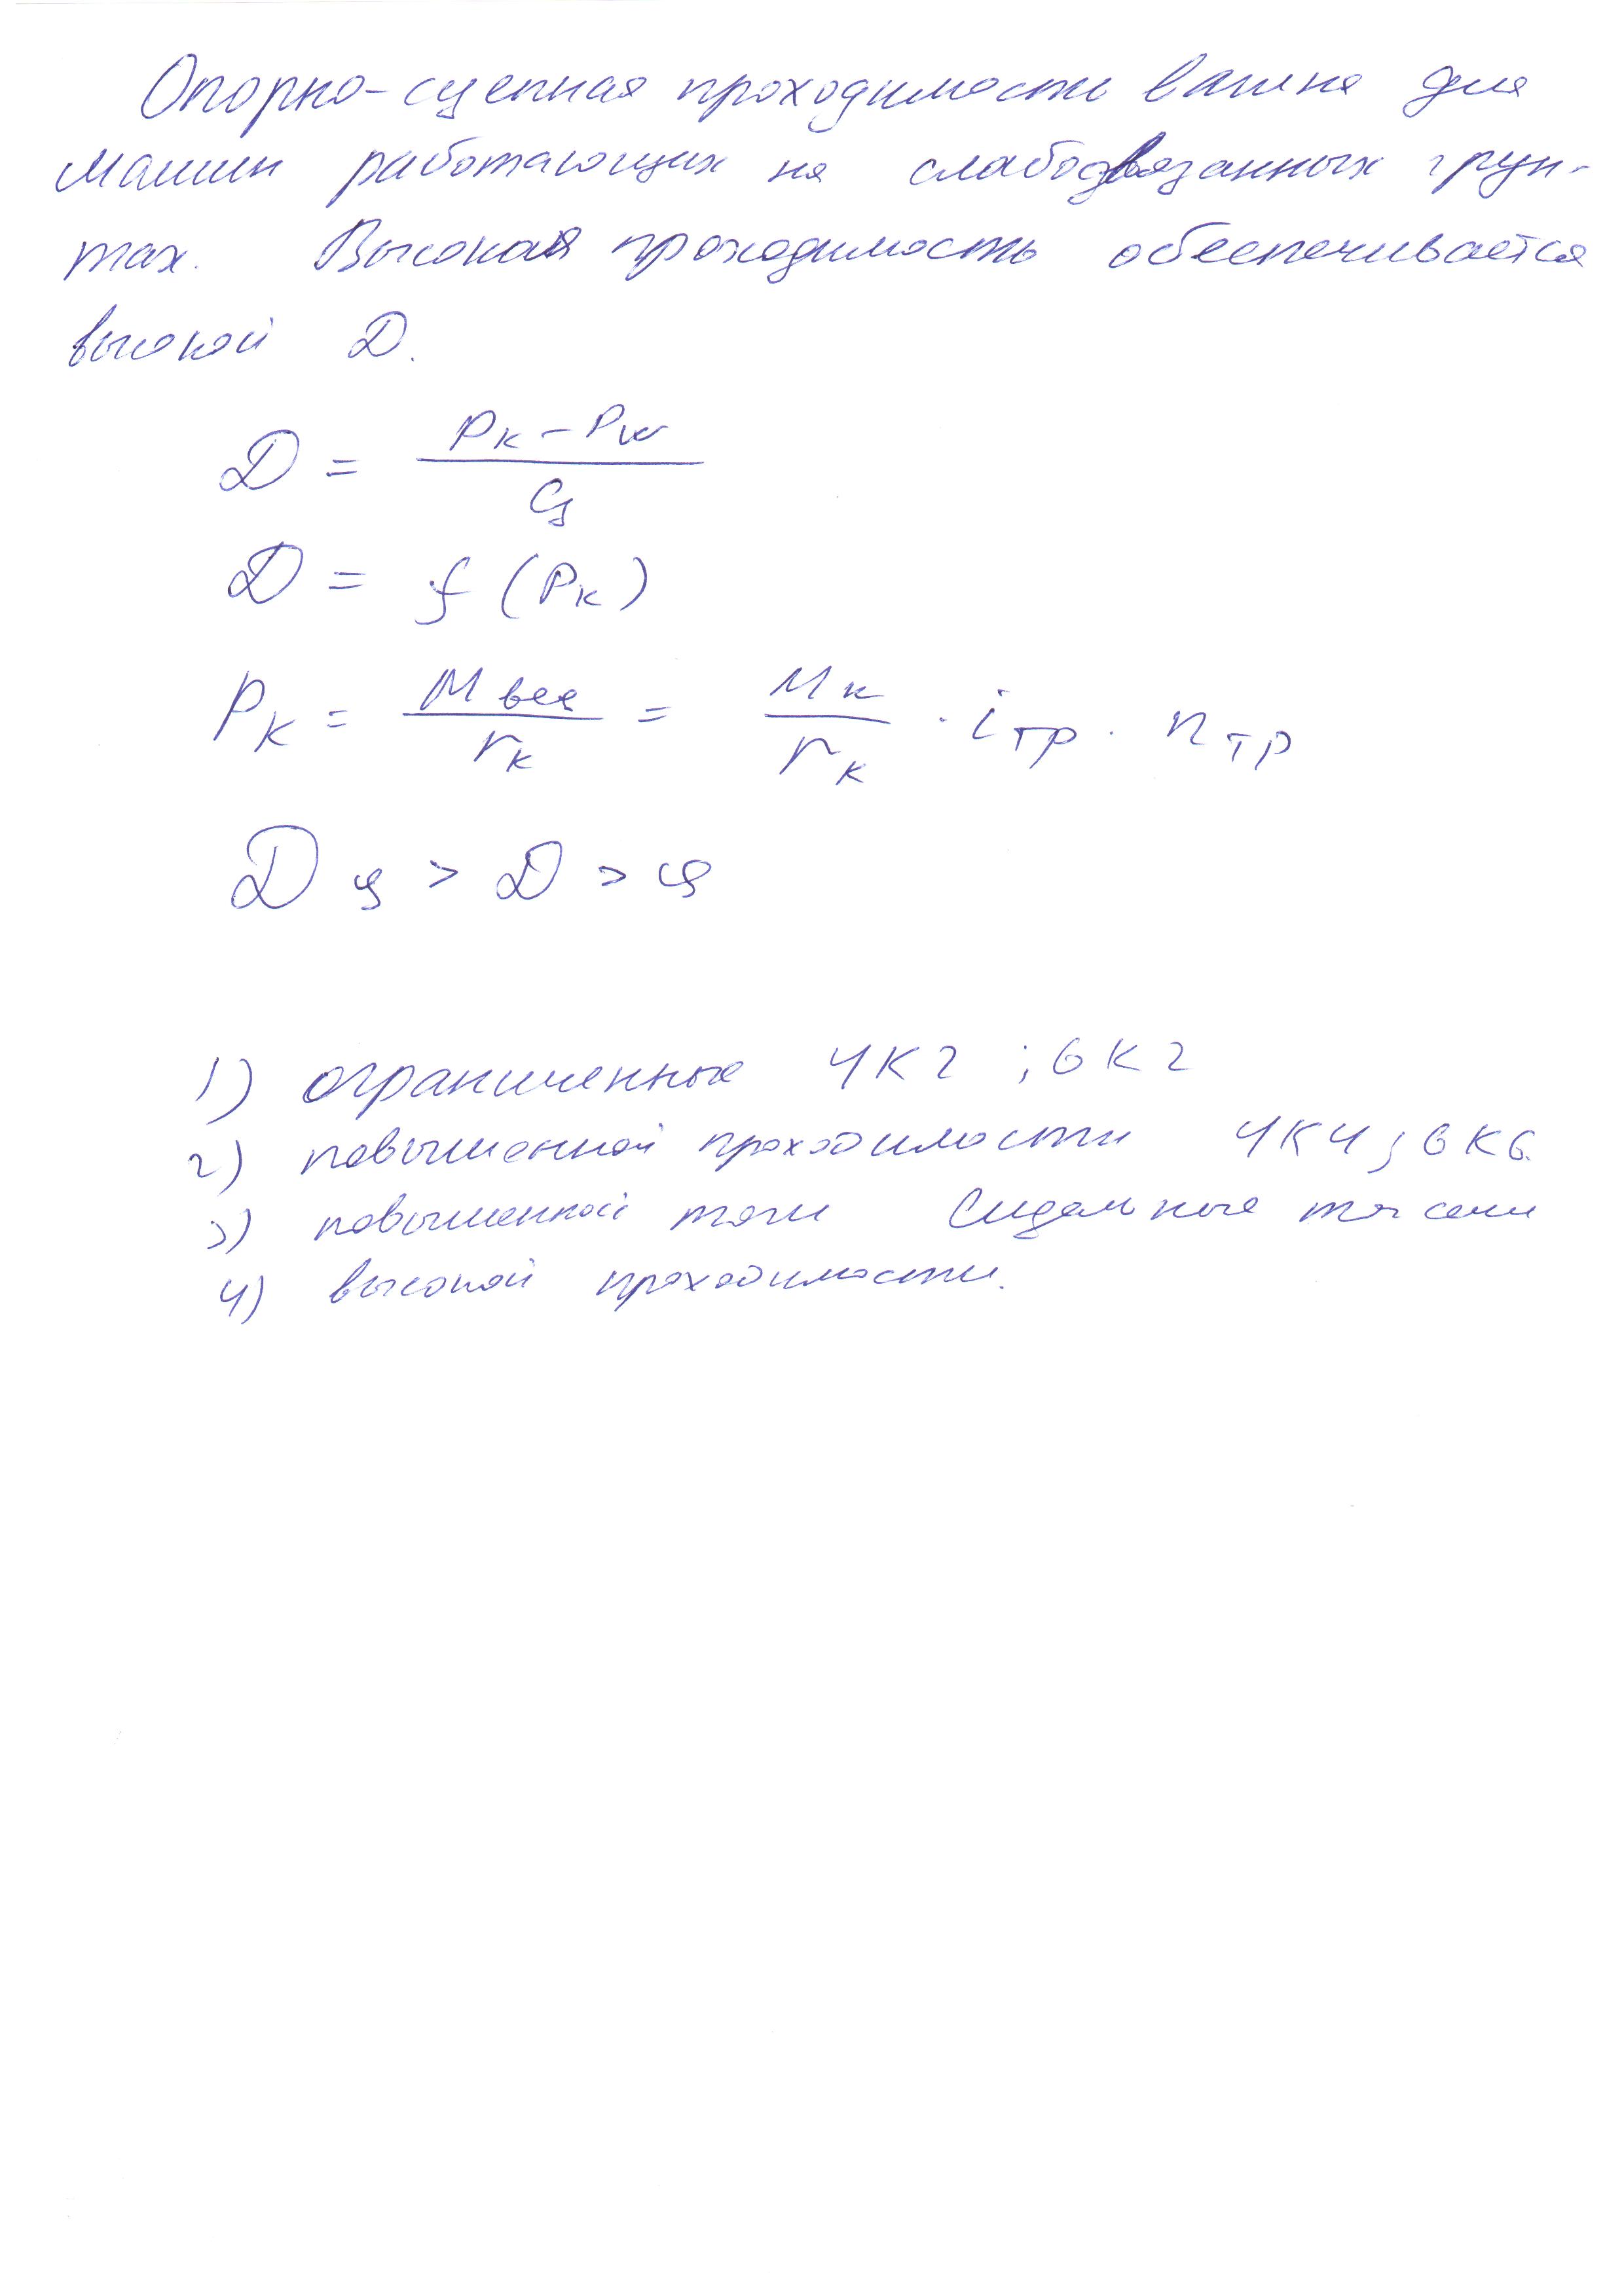 Опорно-сцепная проходимость важна для
машин работающих на слабосвязанных грун-
тах. Высокая проходимость обеспечивается
высокой D.
D = (Pк - Pw) / G
D = f (Pк)
Pк = Mвед / rк = Mк / rк · iтр · nтр
Dφ > D > φ
1) ограниченные 4К2 ; 6К2
2) повышенной проходимости 4К4 ; 6К6.
3) повышенной тяги Сидельные тягачи
4) высокой проходимости.